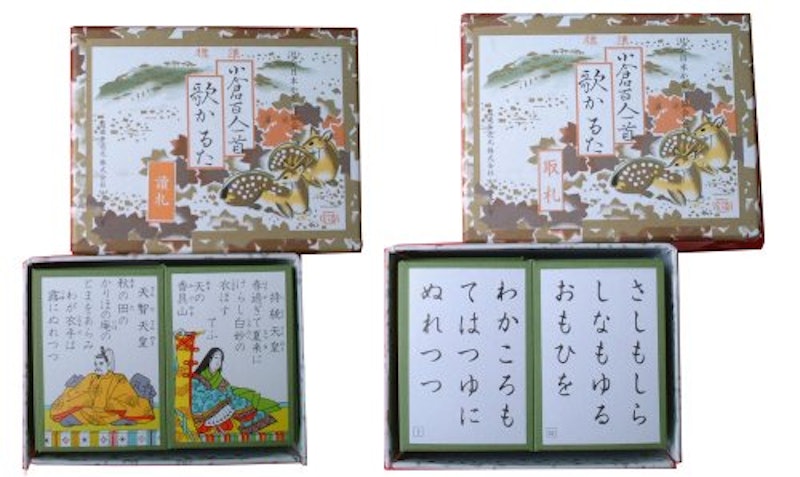 標準
小倉百人一首
歌かるた
讀札
標準
小倉百人一首
歌かるた
取札
天智天皇
秋の田の
かりほの庵の
とまをあらみ
わが衣手は
露にぬれつつ
持統天皇
春過ぎて夏来に
けらし白妙の
衣ほす
てふ
天の
香具山
わかころも
てはつゆに
ぬれつつ
さしもしら
しなもゆる
おもひを